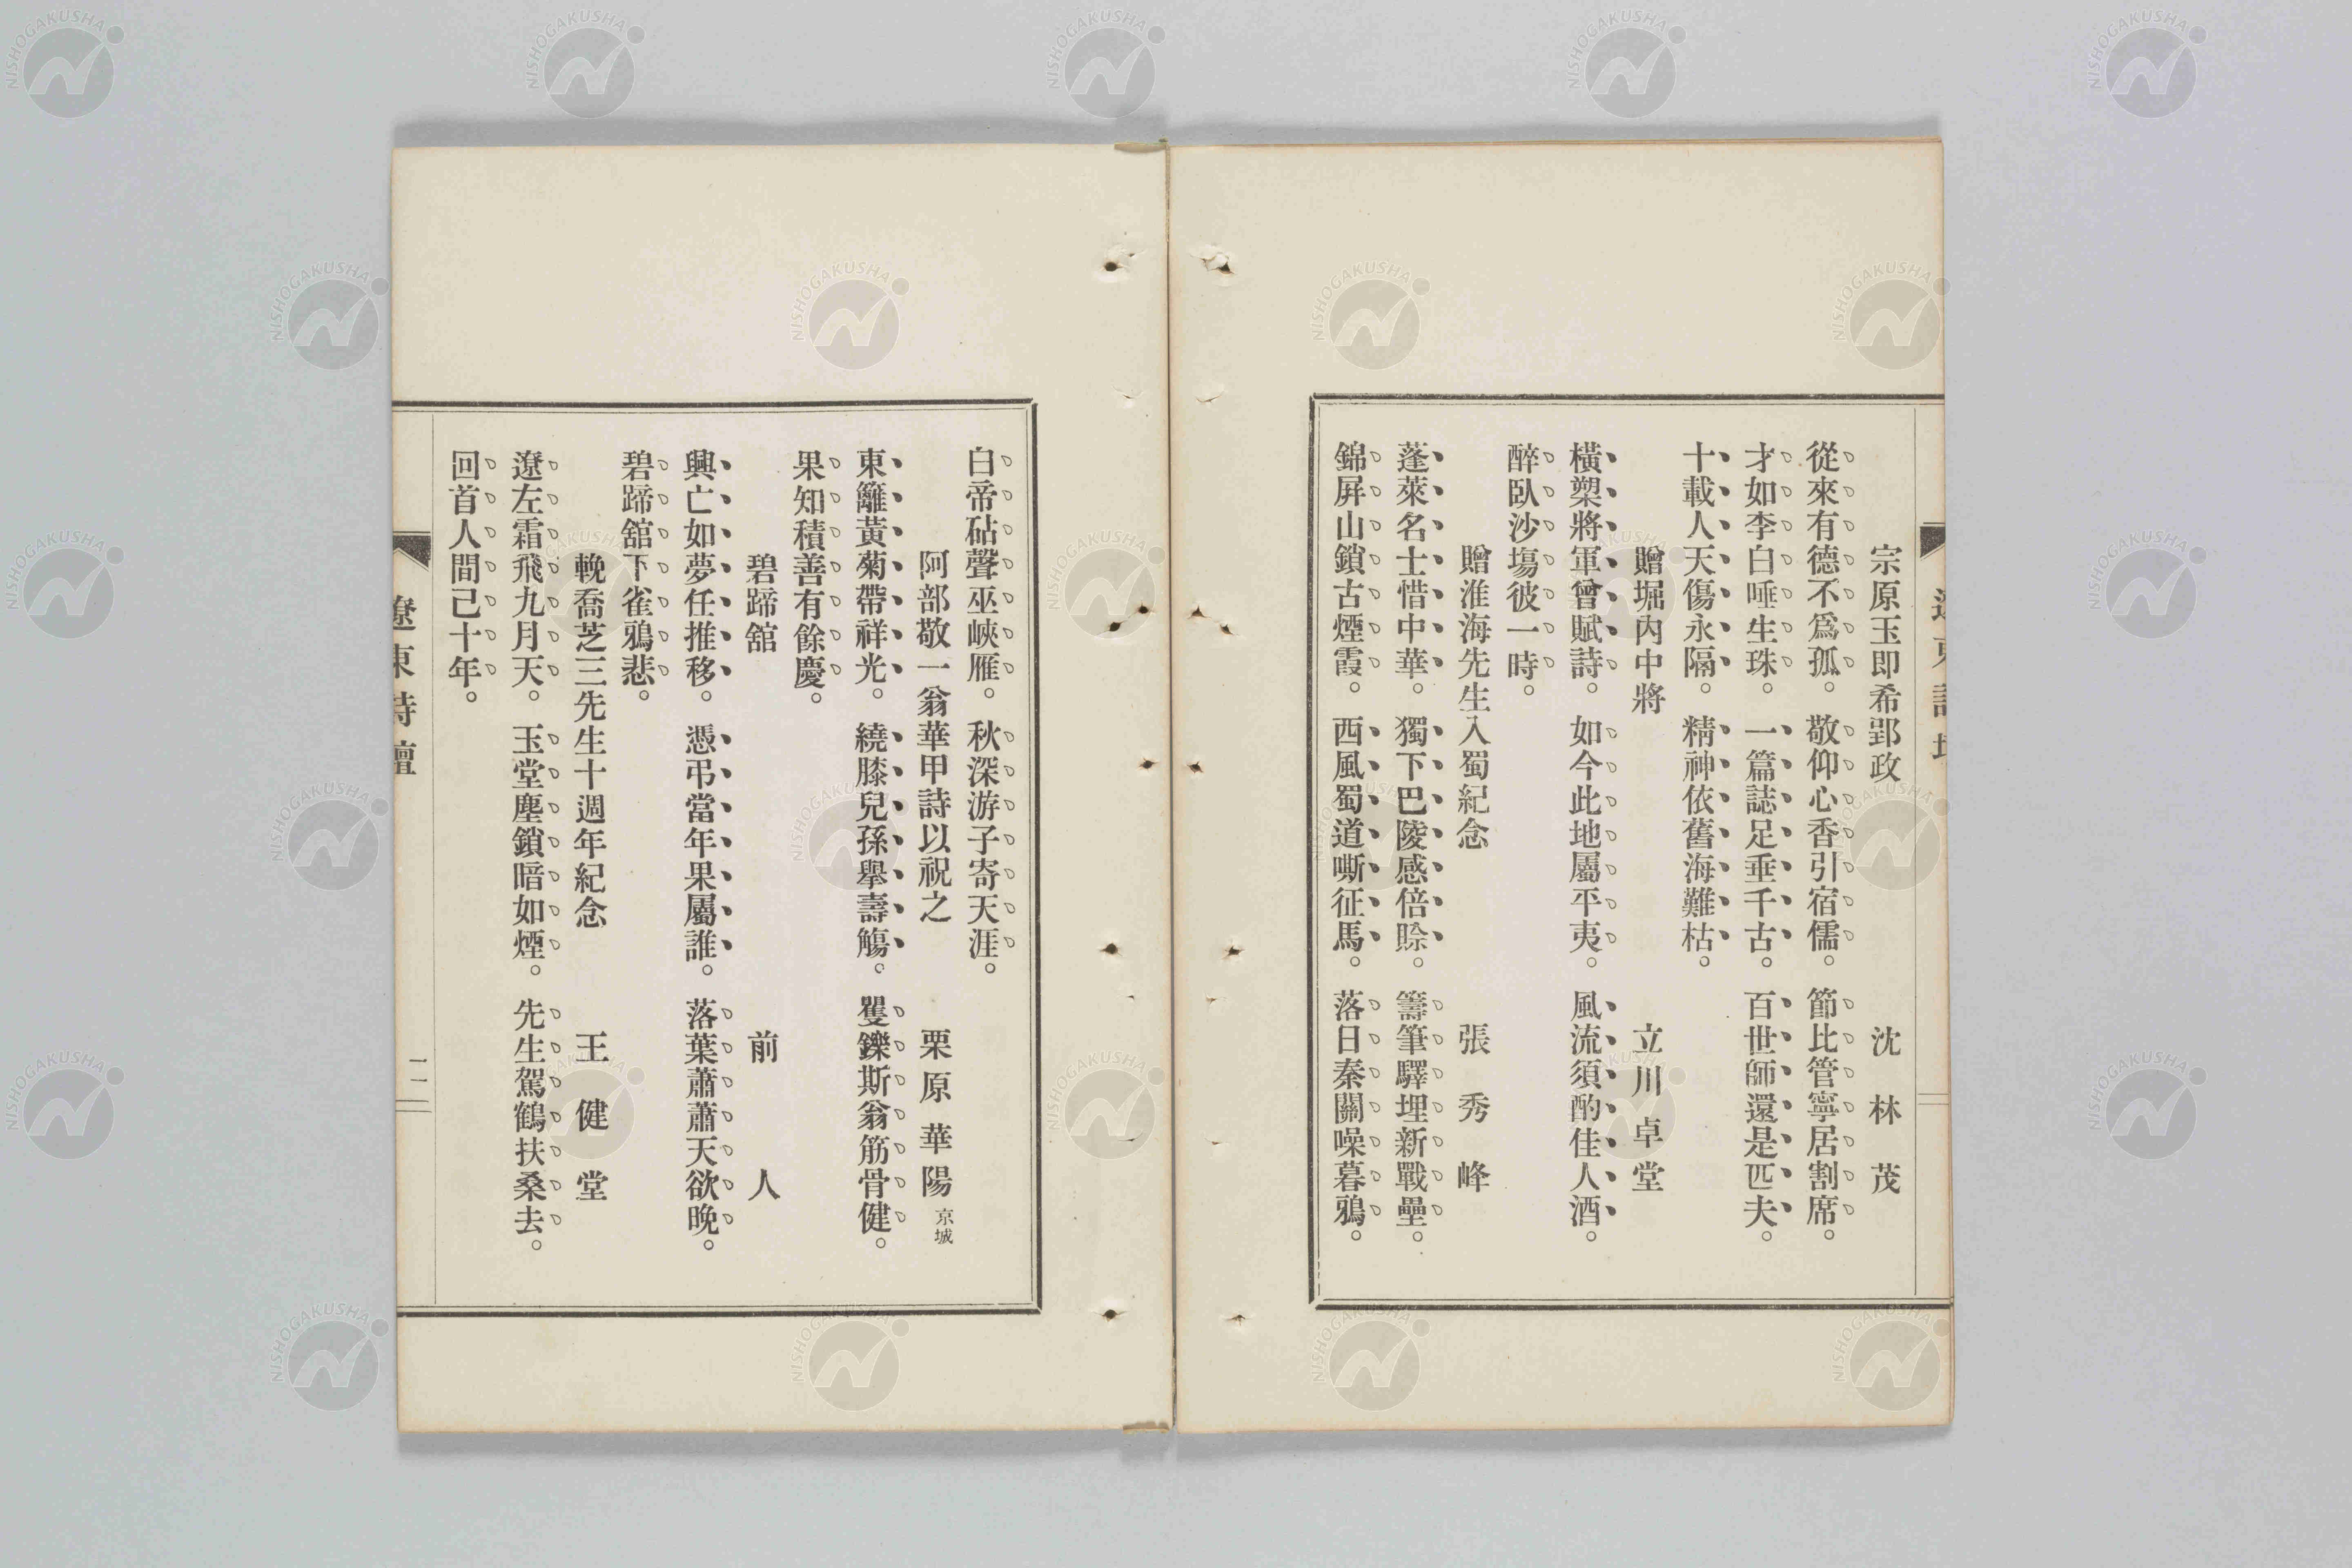 宗原玉即希郢政　沈林茂
從來有德不爲孤。敬仰心香引宿儒。節比管寧居割席。
才如李白唾生珠。一篇誌足垂千古。百世師還是匹夫。
十載人天傷永隔。精神依舊海難枯。
贈堀內中將　立川卓堂
橫槊將軍曾賦詩。如今此地屬平夷。風流須酌佳人酒。
醉臥沙塲彼一時。
贈淮海先生入蜀紀念　張秀峰
蓬萊名士惜中華。獨下巴陵感倍賒。籌筆驛埋新戰壘。
錦屛山鎖古煙霞。西風蜀道嘶征馬。落日秦關噪暮鴉。
白帝砧聲巫峽雁。秋深游子寄天涯。
阿部敬一翁華甲詩以祝之　栗原華陽 京城
東籬黃菊帶祥光。繞膝兒孫擧壽觴。矍鑠斯翁筋骨健。
果知積善有餘慶。
碧蹄舘　前人
興亡如夢任推移。憑弔當年果屬誰。落葉蕭蕭天欲晚。
碧蹄舘下雀鴉悲。
輓喬芝三先生十週年紀念　王健堂
遼左霜飛九月天。玉堂塵鎖暗如煙。先生駕鶴扶桑去。
回首人間己十年。
遼東詩壇
二一
NISHOGAKUSHA